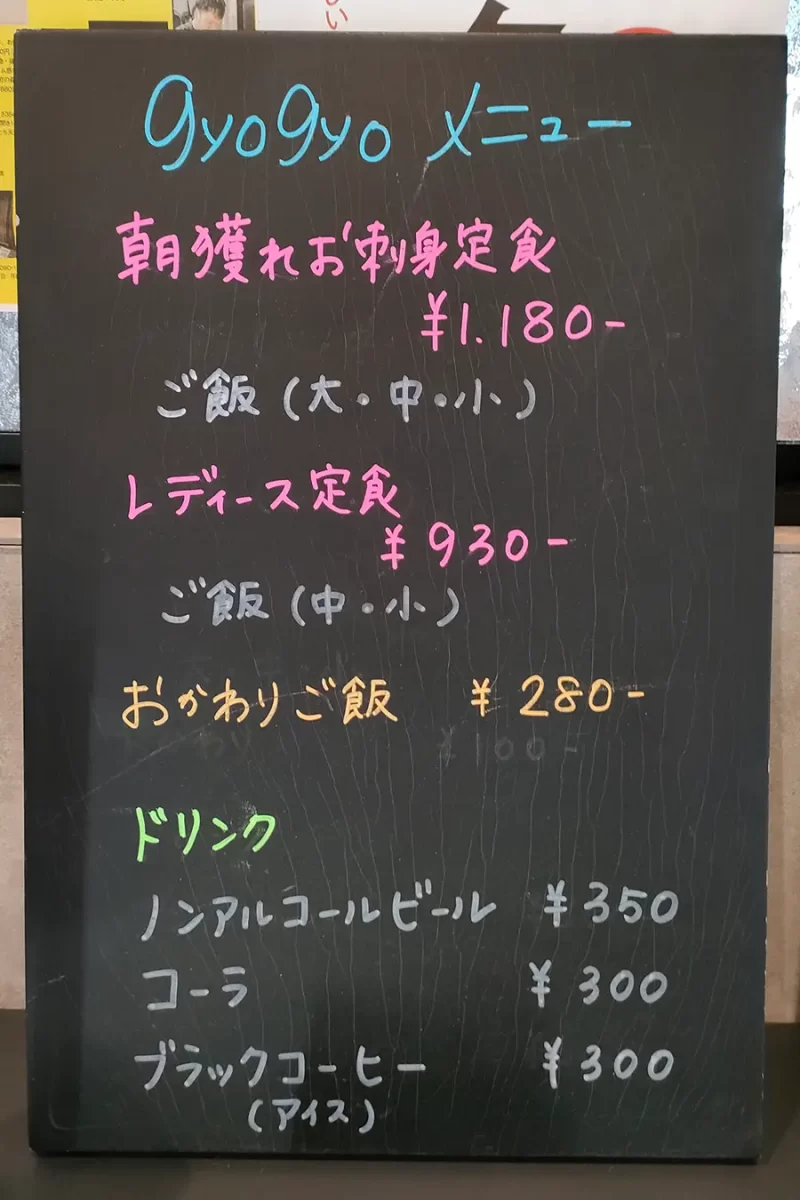 gyogyo メニュー
朝獲れお刺身定食
¥1.180-
ご飯(大・中・小)
レディース定食
¥930-
ご飯(中・小)
おかわりご飯 ¥280-
¥100-
ドリンク
ノンアルコールビール ¥350
コーラ ¥300
ブラックコーヒー ¥300
(アイス)